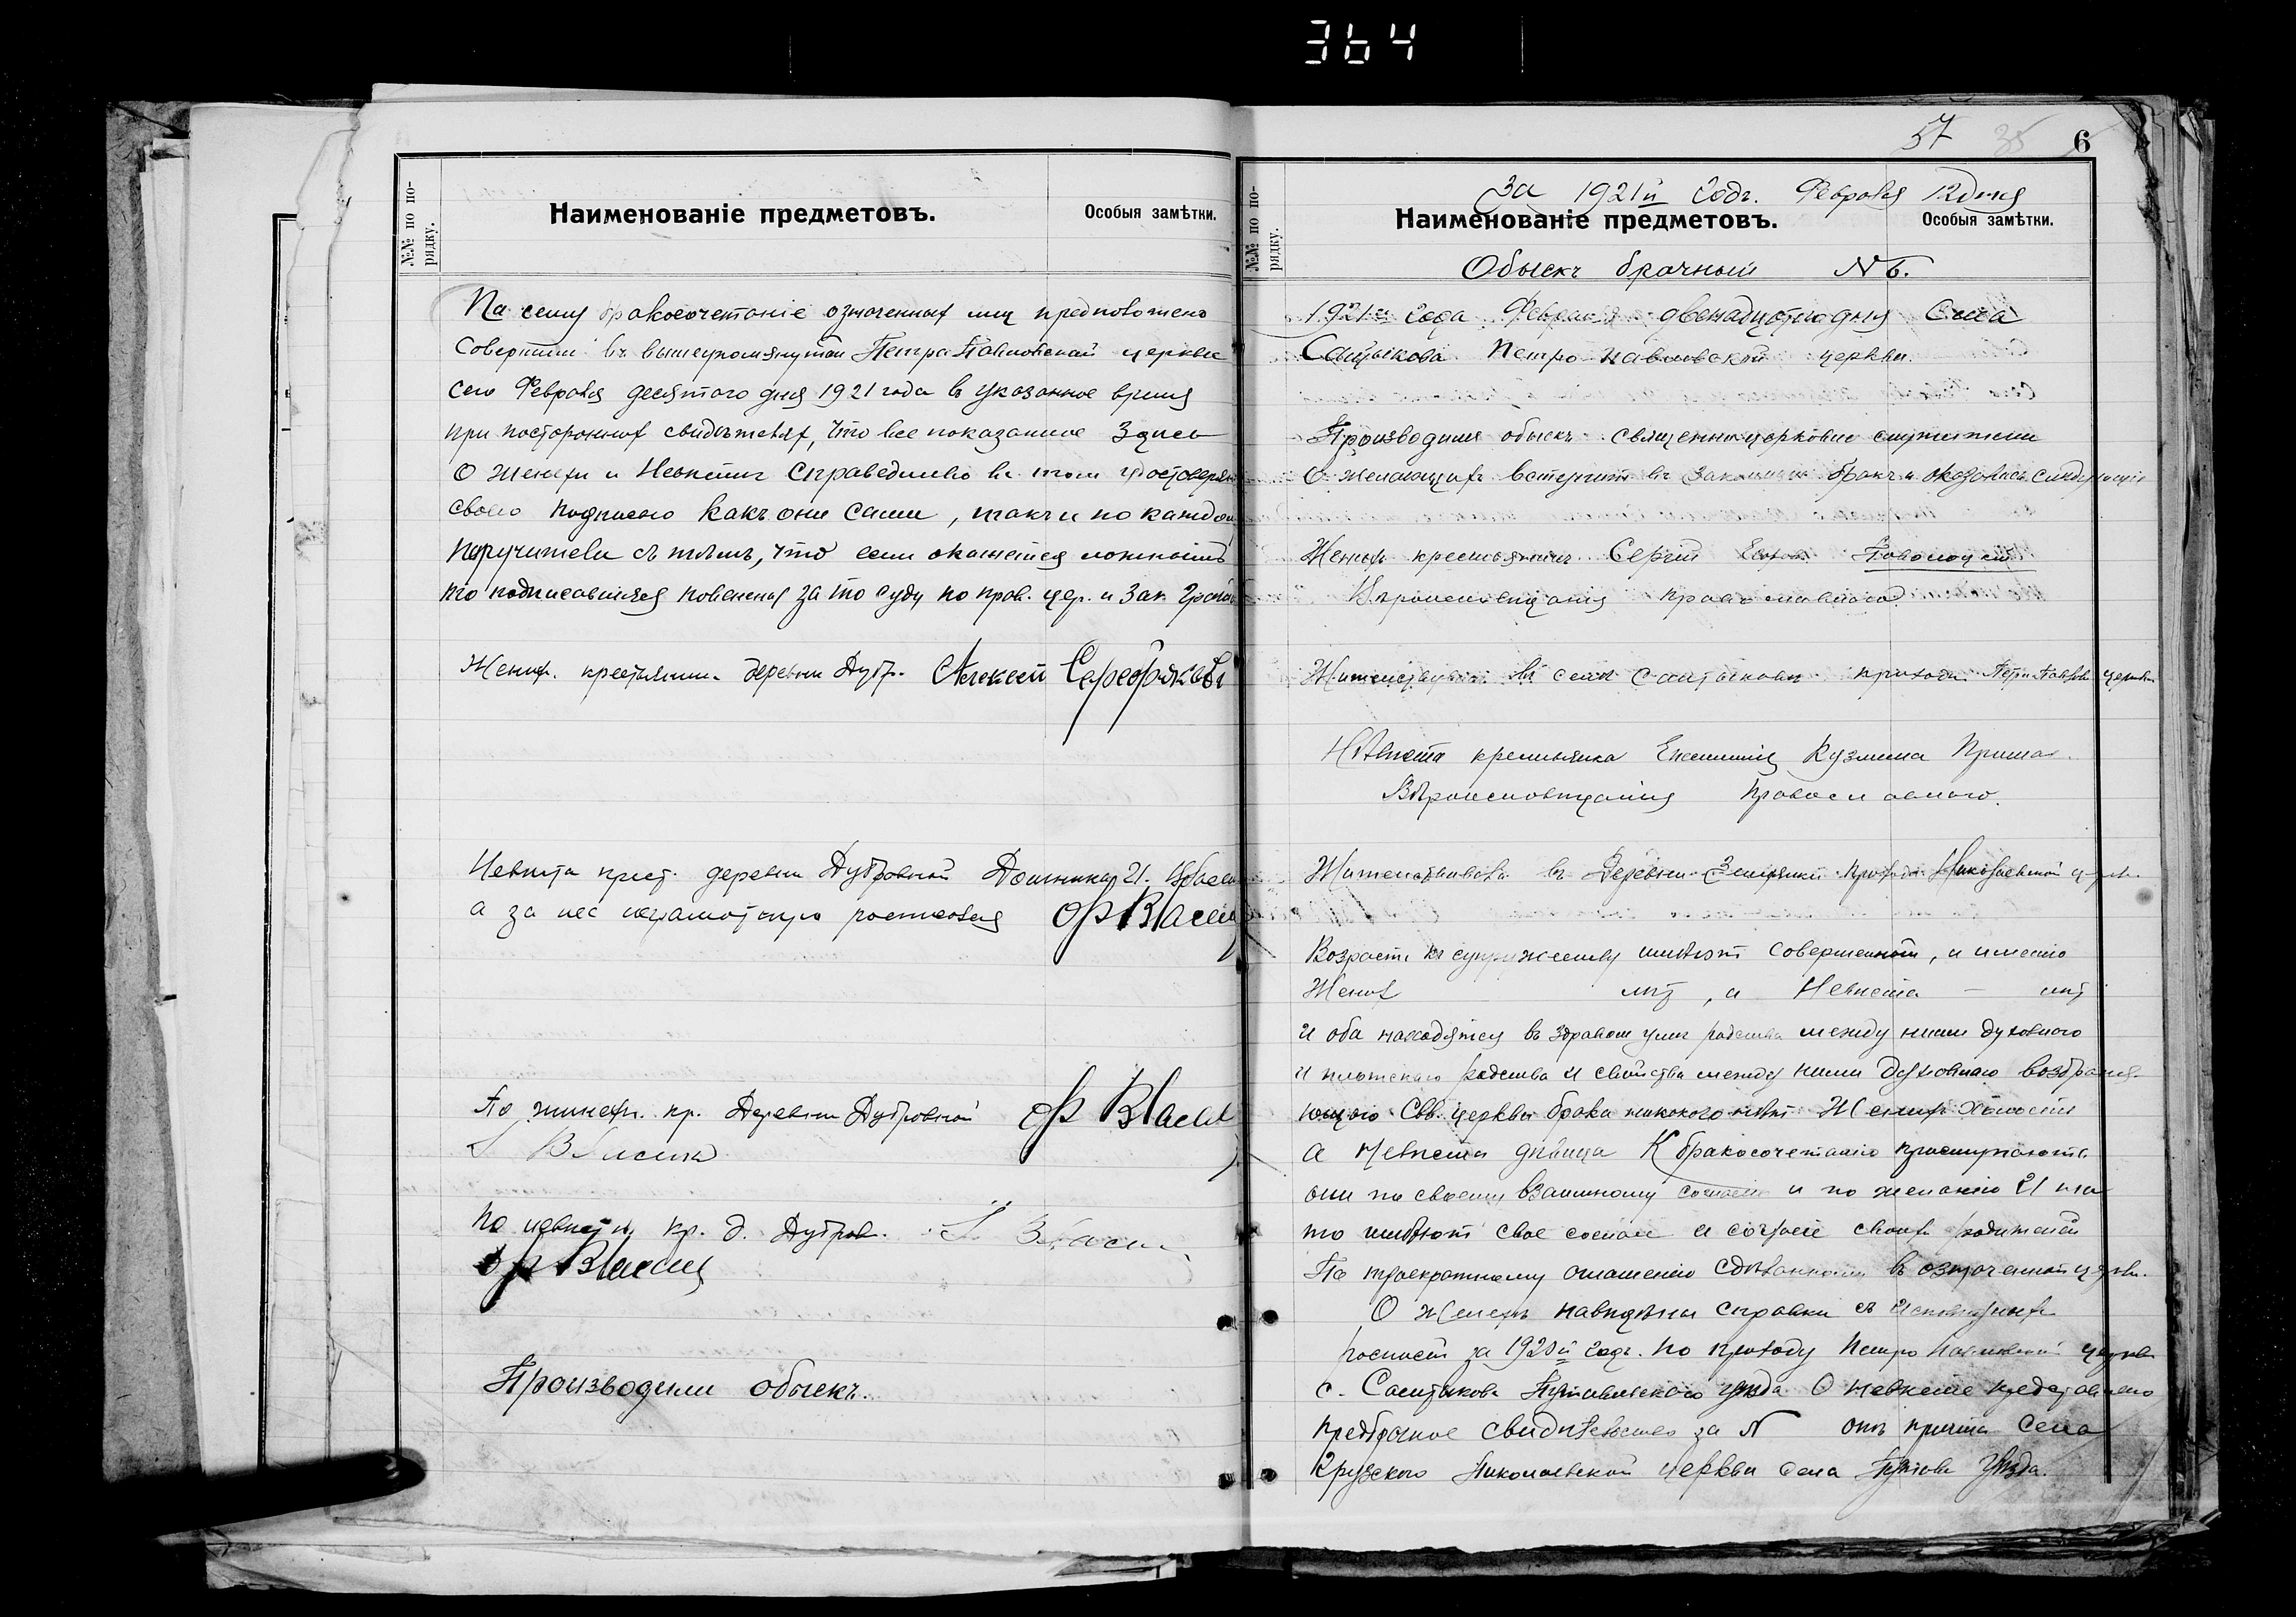 364
№№ по по-
рядку.
Наименованіе предметовъ.
Особыя замѣтки.
На семъ бракосочетаніе означенных лиц предположено
Совершить въ вышеупомянутой Петра Павловской церкви
сего Февраля десятого дня 1921 года въ указанное время
при посторонних свидѣтелях, что все показанное здѣсь
О женихѣ и Невѣстѣ Справедливо въ том удостоверяю
своею подписью какъ они сами, такъ и по каждом
поручители съ тѣмъ, что если окажется ложнымъ
то подписавшіяся повинны за то суду по прав. цер. и Зак. Граж
Жених. крестьянин деревни Дубр. Алексей Серебряков
Невѣста крест. деревни Дубровной 21.
а за нес неграмотную росписался
По жених. кр. Деревни Дубровной
По невѣстѣ кр. д. Дубров.
Производили обыскъ.
57 6
За 1921й годъ. Февраля 12 дня
№№ по по-
рядку.
Наименованіе предметовъ.
Особыя замѣтки.
Обыскъ брачный № 6.
1921го года Февраля двенадцатого дня Села
Петро Павловской церкви.
Производили обыскъ священно церковно служители
О желающихъ вступить въ законный бракъ и оказалось слѣдующее
Женихъ крестьянинъ Сергий
Вѣроисповѣданія православного.
Жительствуетъ въ селѣ прихода Петро Павлов церкви
Невѣста крестьянка Кузмина
Вѣроисповѣданія Православного.
Жительствовала въ Деревни прихода Николаевской церкв.
Возрастъ къ супружеству имѣютъ совершенный, и именно
Жених лѣт, а Невѣста — лѣт
и оба находятся въ здравом умѣ родства между ними духовного
и плотского родства и свойства между ними духовного возбраня-
ющаго Свв. церкви брака никокого нѣт Жених Холостъ
а Невѣста дѣвица К бракосочетанію приступаютъ
они по своему взаимному согласію и по желанію И на
то имѣютъ свое согласіе и согласіе своих родителей
По троекратному оглашенію сдѣланному въ означенной церкви.
О Женихѣ наведены справки съ Исповѣдных
росписей за 1920й годъ. по приходу Петро Павловской церкви
с. Путивльского уѣзда О невѣсте представлено
предбрачное свидѣтельство за № отъ причта Села
Николаевской церкви села Путивл Уѣзда.